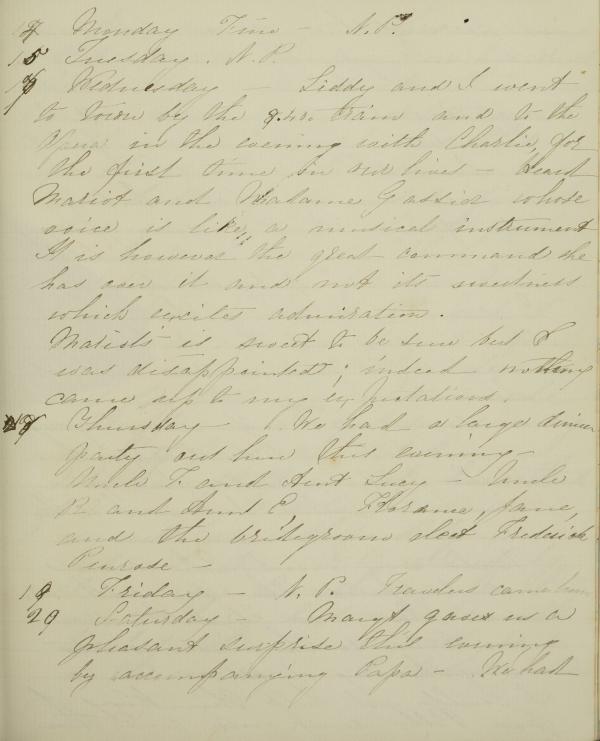 Monday Fine - N.P.
15 Tuesday. N.P.
16 Wednesday - Liddy and I went
to town by the train and to the
Opera in the evening with Charlie, for
the first time in our lives - heard
Mariot and Madame Gassier whose
voice is like a musical instrument
It is however the great command she
has over it and not its sweetness
which excites admiration.
Mariot's is sweet to be sure but I
was disappointed; indeed nothing
came up to my expectations.
Thursday We had a large dinner
party out here this evening -
Uncle T. and Aunt Lucy - Uncle
R. and Aunt E. Florance, Jane,
and the bridegroom elect Frederick
Penrose -
Friday - N.P. Travelers came
Saturday - Margt gave us a
pleasant surprise this evening
by accompanying Papa - We had